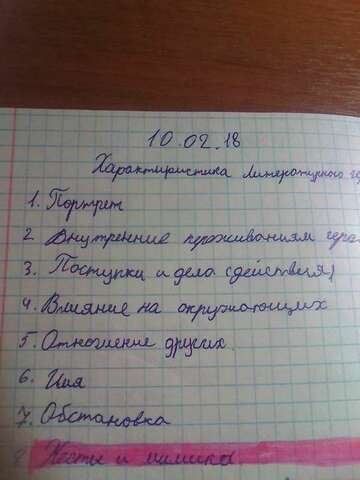 10.02.18
Характиристика литературного ге
1. Портрет
2 Внутренние переживаниям геро
3. Поступки и дела (действия)
4. Влияние на окружающих
5. Отношение других.
6. Имя
7. Обстановка
8 Жесты и мимика.